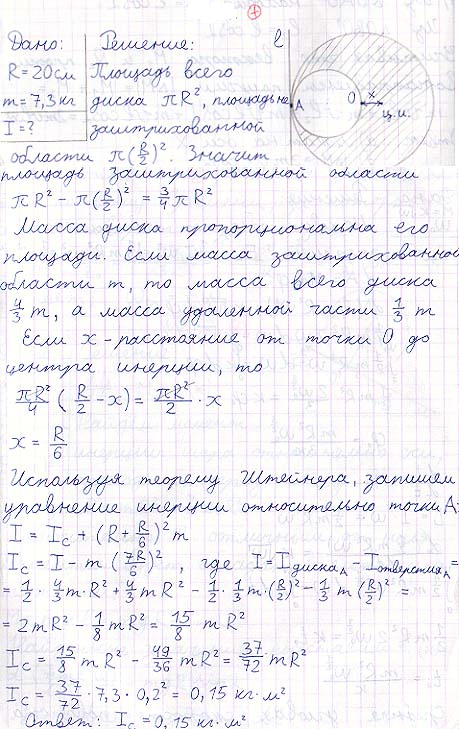 Дано: Решение: l
R = 20 см Площадь всего
m = 7,3 кг диска πR², площадь не A O x
I = ? заштрихованной ц.и.
области π(R/2)². Значит
площадь заштрихованной области
πR² - π(R/2)² = 3/4 πR²
Масса диска пропорциональна его
площади. Если масса заштрихованной
области m, то масса всего диска
4/3 m, а масса удаленной части 1/3 m
Если x - расстояние от точки O до
центра инерции, то
πR²/4 (R/2 - x) = πR²/2 · x
x = R/6
Используя теорему Штейнера, запишем
уравнение инерции относительно точки A:
I = I_C + (R + R/6)² m
I_C = I - m (7R/6)², где I = I_диска_A - I_отверстия_A =
= 1/2 · 4/3 m · R² + 4/3 m R² - 1/2 · 1/3 m · (R/2)² - 1/3 m (R/2)² =
= 2mR² - 1/8 mR² = 15/8 mR²
I_C = 15/8 mR² - 49/36 mR² = 37/72 mR²
I_C = 37/72 · 7,3 · 0,2² = 0,15 кг·м²
Ответ: I_C = 0,15 кг·м²